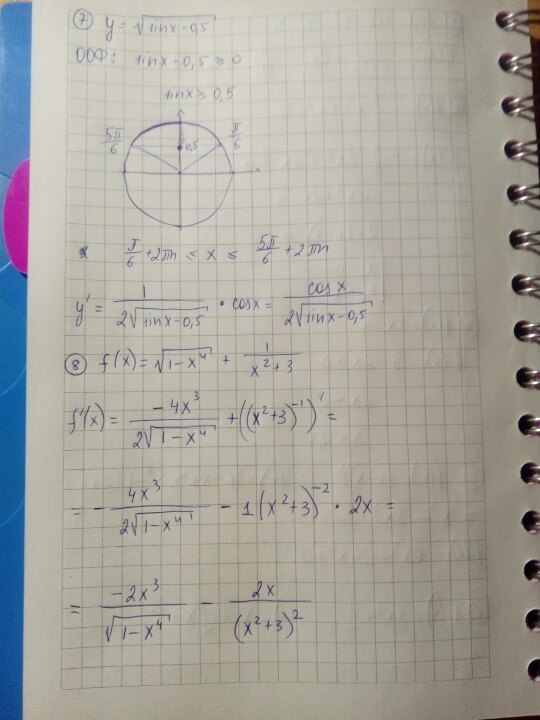 ⑦ y = √(sinx-0,5)
ООФ: sinx-0,5 ≥ 0
sinx ≥ 0,5
5π/6 0,5 π/6
π/6 + 2πn ≤ x ≤ 5π/6 + 2πn
y' = 1/(2√(sinx-0,5)) · cosx = cosx/(2√(sinx-0,5))
⑧ f(x) = √(1-x⁴) + 1/(x²+3)
f'(x) = -4x³/(2√(1-x⁴)) + ((x²+3)⁻¹)' =
= - 4x³/(2√(1-x⁴)) - 1(x²+3)⁻² · 2x =
= -2x³/√(1-x⁴) - 2x/(x²+3)²